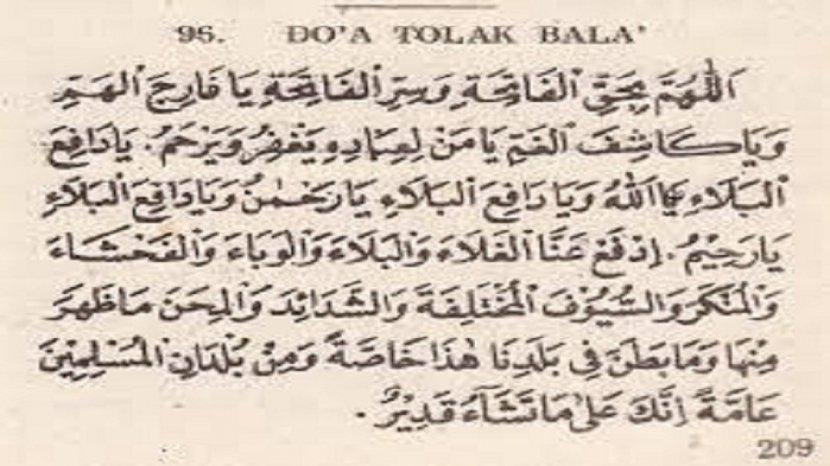 95. DO'A TOLAK BALA'
اَللّٰهُمَّ بِحَقِّ الْفَاتِحَةِ وَسِرِّ الْفَاتِحَةِ يَا فَارِجَ الْهَمِّ
وَيَا كَاشِفَ الْغَمِّ يَا مَنْ لِعِبَادِهِ يَغْفِرُ وَيَرْحَمُ. يَا دَافِعَ
الْبَلَاءِ يَا اَللّٰهُ وَيَا دَافِعَ الْبَلَاءِ يَا رَحْمٰنُ وَيَا دَافِعَ الْبَلَاءِ
يَا رَحِيْمُ. اِدْفَعْ عَنَّا الْغَلَاءَ وَالْبَلَاءَ وَالْوَبَاءَ وَالْفَحْشَاءَ
وَالْمُنْكَرَ وَالسُّيُوْفَ الْمُخْتَلِفَةَ وَالشَّدَائِدَ وَالْمِحَنَ مَا ظَهَرَ
مِنْهَا وَمَا بَطَنَ فِي بَلَدِنَا هٰذَا خَاصَّةً وَمِنْ بُلْدَانِ الْمُسْلِمِيْنَ
عَامَّةً اِنَّكَ عَلٰى مَا تَشَاءُ قَدِيْرٌ.
209